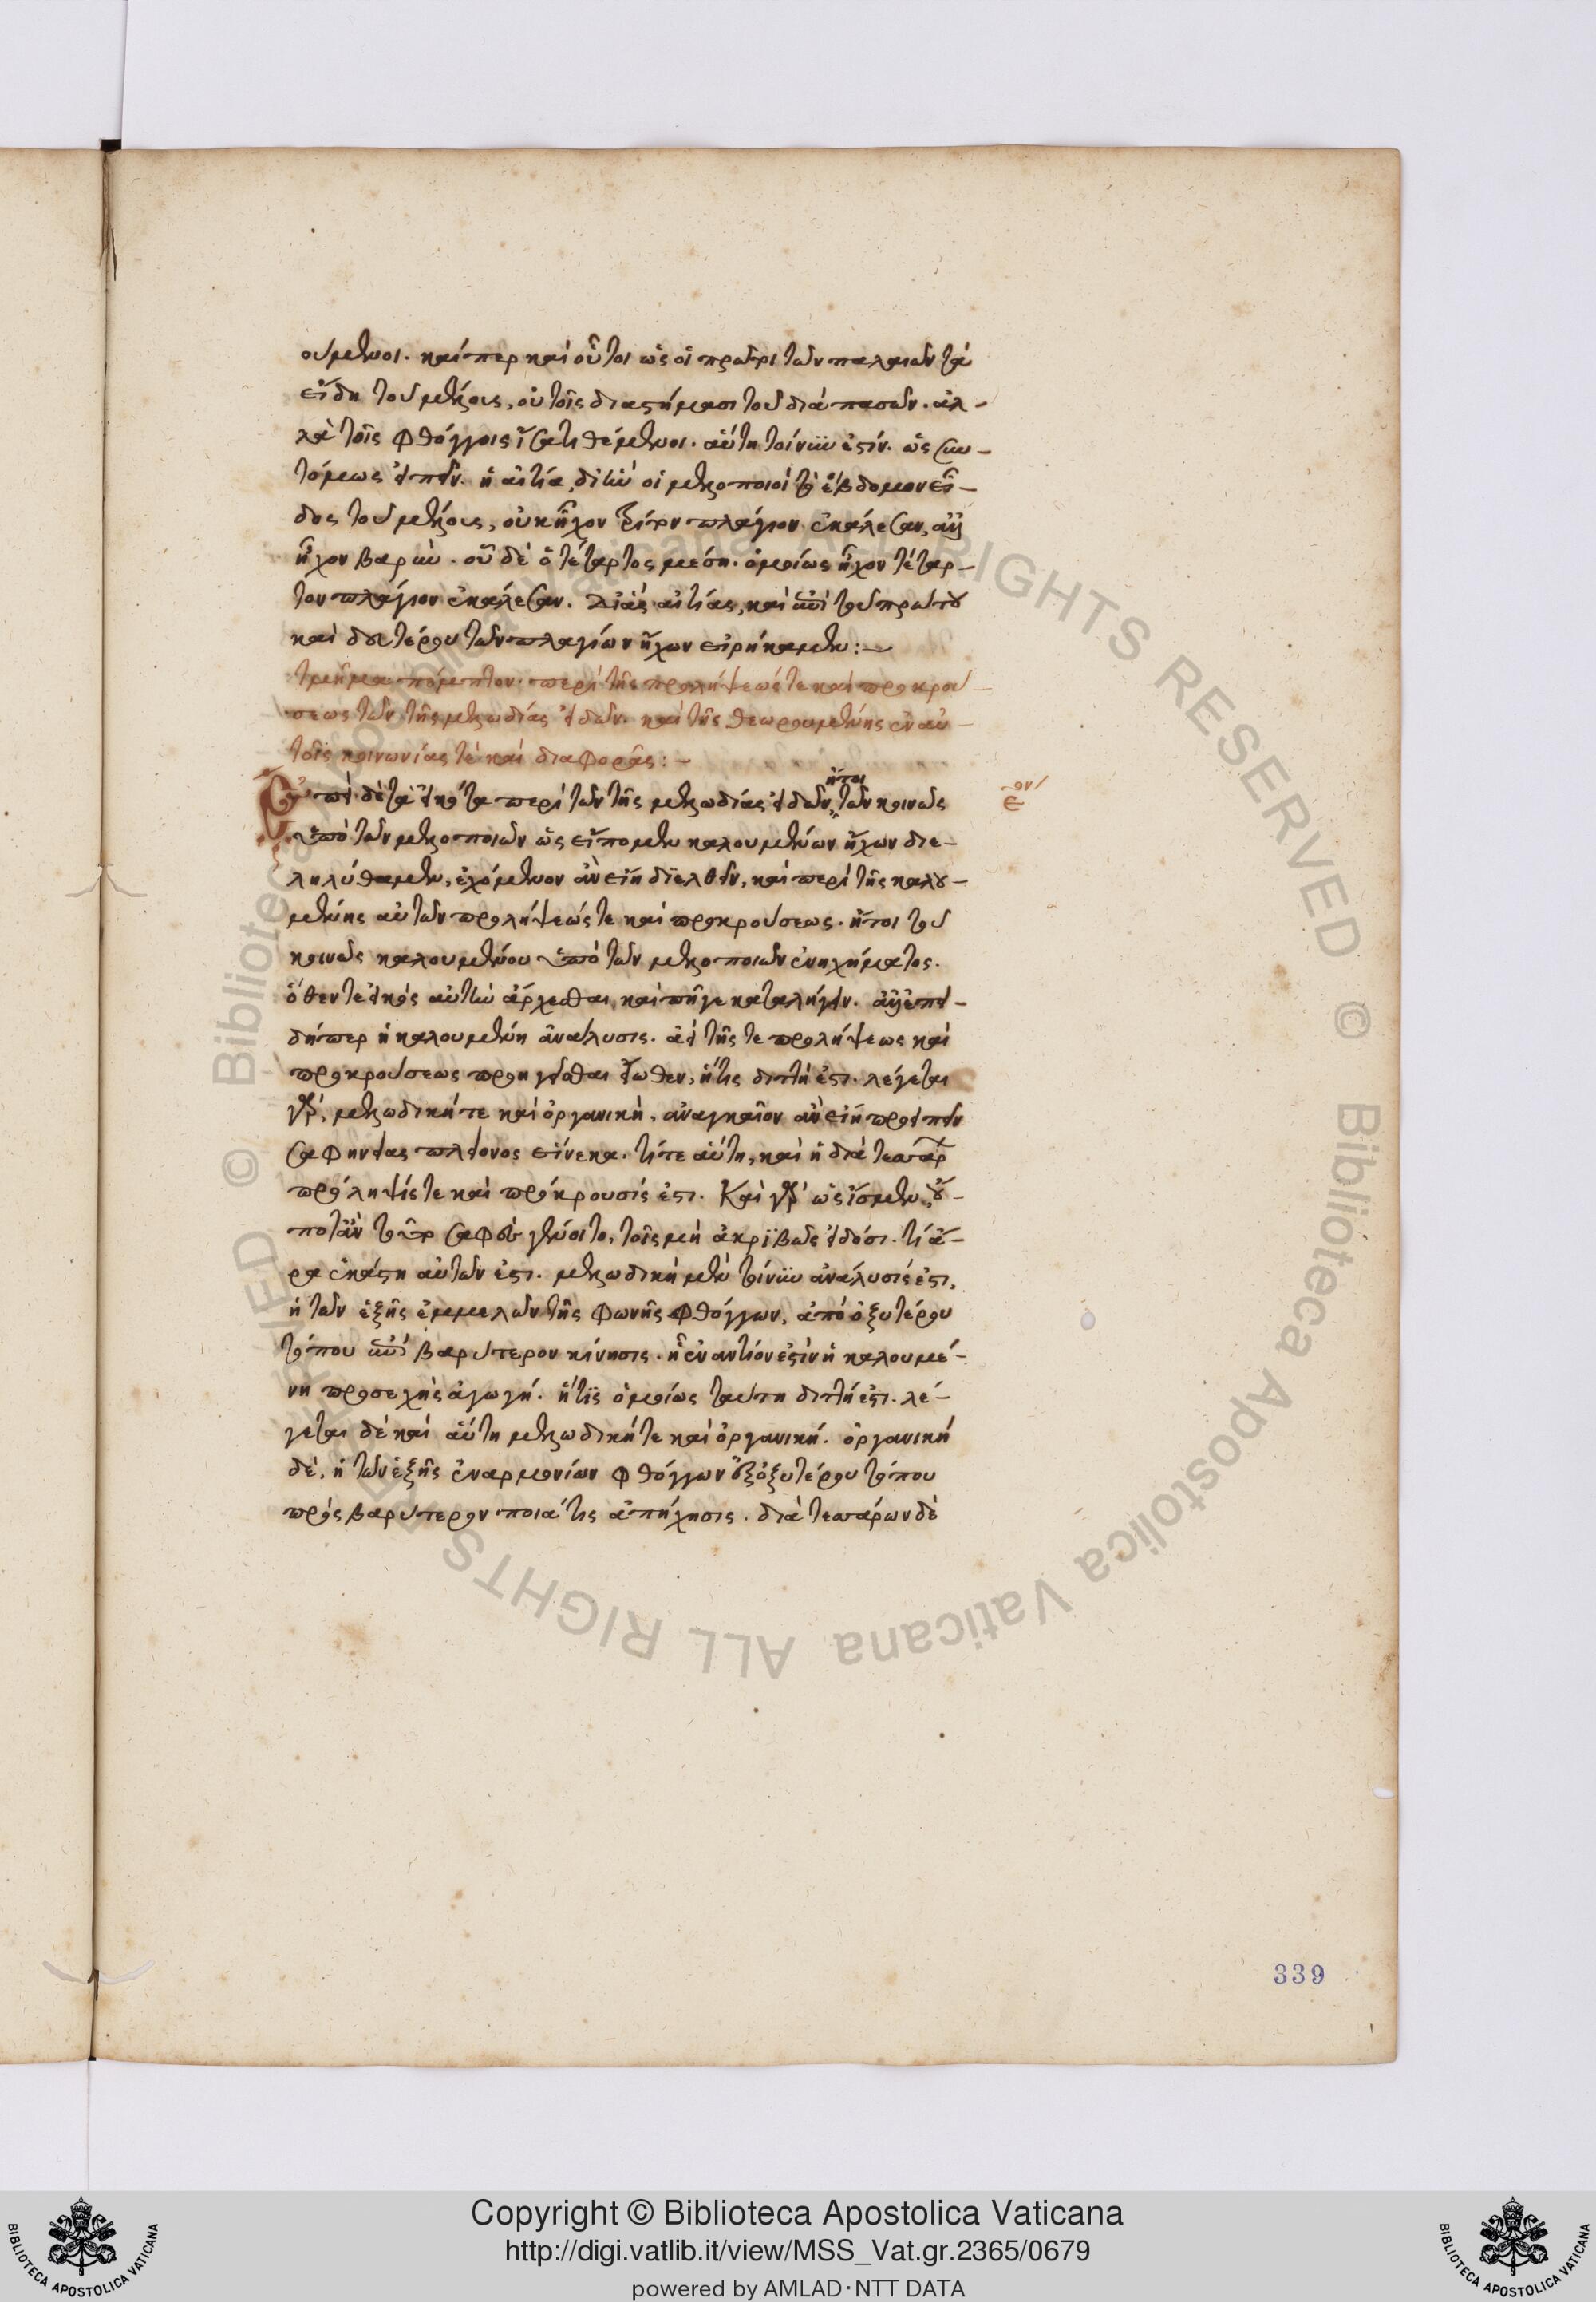 ούμενοι. καίπερ καὶ οὗτοι ὡς οἱ πρῶτοι τῶν παλαιῶν τὰ
εἴδη τοῦ μέλους, οὐ τοῖς διαστήμασι τοῦ διὰ πασῶν. ἀλ-
λὰ τοῖς φθόγγοις ἰσατιθέμενοι. αὕτη τοίνυν ἐστίν. ὡς συν-
τόμως εἰπεῖν. ἡ αἰτία, δι' ἣν οἱ μελοποιοὶ τὸ ἕβδομον εἶ-
δος τοῦ μέλους, οὐκ ἦχον τρίτον πλάγιον ἐκάλεσαν, ἀλλ'
ἦχον βαρὺν. οὗ δὲ ὁ τέταρτος μέση. ὁμοίως ἦχον τέταρ-
τον πλάγιον ἐκάλεσαν. Δι' ἃς αἰτίας, καὶ ἐπὶ τοῦ πρώτου
καὶ δευτέρου τῶν πλαγίων ἤχων εἰρήκαμεν:-
τμῆμα πέμπτον. περὶ τῆς προλήψεώς τε καὶ προκρού-
σεως τῶν τῆς μελωδίας εἰδῶν. καὶ τῆς θεωρουμένης ἐν αὐ-
τοῖς κοινωνίας τὲ καὶ διαφορᾶς:-
Ἐπεὶ δὲ τὰ εἰκότα περὶ τῶν τῆς μελωδίας εἰδῶν, ἤτοι τῶν κοινῶς
ὑπὸ τῶν μελοποιῶν ὡς εἴπομεν καλουμένων ἤχων διε-
ληλύθαμεν, ἐχόμενον ἂν εἴη διελθεῖν, καὶ περὶ τῆς καλου-
μένης αὐτῶν προλήψεώς τε καὶ προκρούσεως. ἤτοι τοῦ
κοινῶς καλουμένου ὑπὸ τῶν μελοποιῶν ἐνηχήματος.
ὅθεν τε εἰκὸς αὐτὴν ἄρχεσθαι, καὶ πῆγε καταλήγειν. ἀλλ' ἐπει-
δήπερ ἡ καλουμένη ἀνάλυσις. ἀεὶ τῆς τε προλήψεως καὶ
προκρούσεως προηγεῖσθαι εἴωθεν, ἥτις διττή ἐστι. λέγεται
γὰρ, μελωδική τε καὶ ὀργανικὴ, ἀναγκαῖον ἂν εἴη προειπεῖν
σαφηνείας πλείονος εἵνεκα. τί τε αὕτη, καὶ ἡ διὰ τεσσάρ
πρόληψίς τε καὶ πρόκρουσίς ἐστι. Καὶ γὰρ ὡς ἴσμεν, οὔ-
ποτ' ἂν σαφὲς γένοιτο, τοῖς μὴ ἀκριβῶς εἰδόσι. τί ἄ-
ρα ἑκάστη αὐτῶν ἐστι. μελωδικὴ μὲν τοίνυν ἀνάλυσίς ἐστι,
ἡ τῶν ἑξῆς ἐμμελῶν τῆς φωνῆς φθόγγων, ἀπὸ ὀξυτέρου
τόπου ἐπὶ βαρύτερον κίνησις. ἧ ἐναντίον ἐστὶν ἡ καλουμέ-
νη προσεχὴς ἀγωγή. ἥτις ὁμοίως ταύτη διττή ἐστι. λέ-
γεται δὲ καὶ αὕτη μελωδική τε καὶ ὀργανική. ὀργανικὴ
δὲ, ἡ τῶν ἑξῆς ἐναρμονίων φθόγγων ἐξ ὀξυτέρου τόπου
πρὸς βαρύτερον ποιά τις ἀπήχησις. διὰ τεσσάρων δὲ
ε ον
339
© Biblioteca Apostolica Vaticana ALL RIGHTS RESERVED
Copyright © Biblioteca Apostolica Vaticana
http://digi.vatlib.it/view/MSS_Vat.gr.2365/0679
powered by AMLAD·NTT DATA
BIBLIOTECA APOSTOLICA VATICANA
BIBLIOTECA APOSTOLICA VATICANA